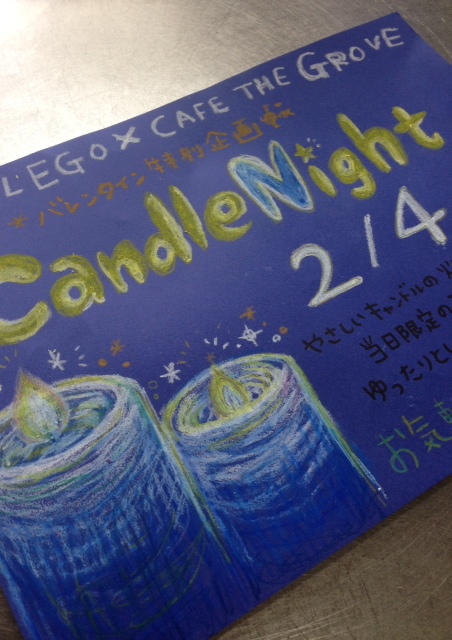 L'EGO × CAFE THE GROVE
*バレンタイン特別企画*
Candle Night
2/4
やさしいキャンドルの
当日限定の
ゆったりと
お気